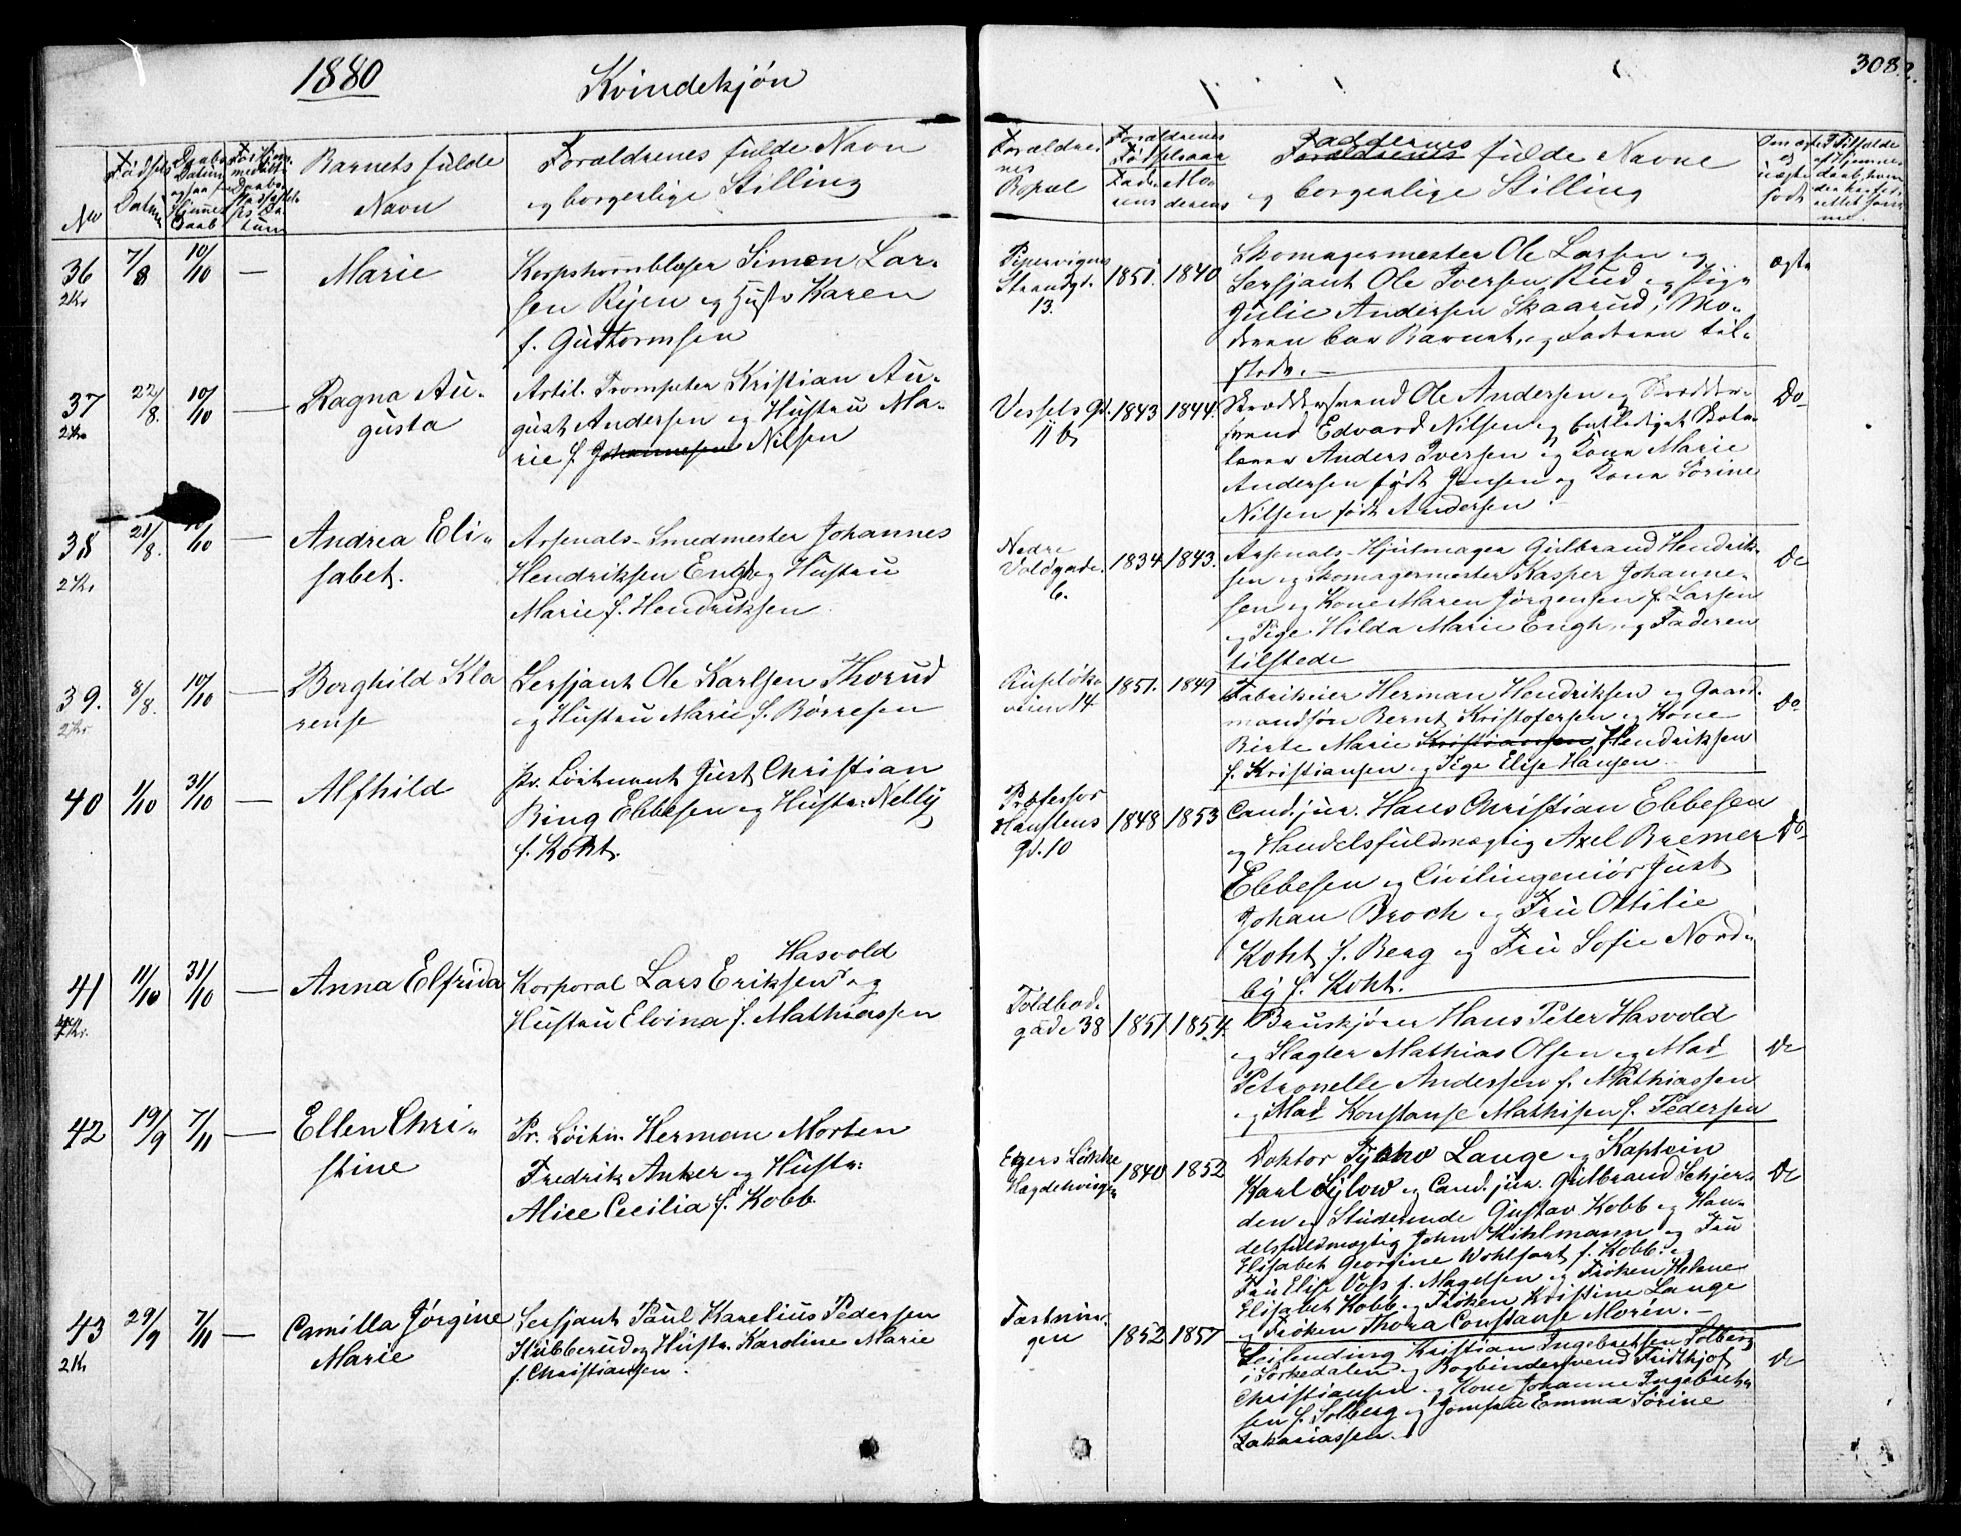 1880
Kvindekjön
308
No
Födsels
Datum
Barnets fulde
Navn
Forældrenes fulde Navn
og borgerlige Stilling
Forældre-
nes
Bopæl
Forældrenes
Födselsaar
Fade-
rens
Mo-
derens
Faddernes
Forældrenes fulde Navne
og borgerlige Stilling
36
2 Kr
7/8
10/10
—
Marie
Korpshornblæser Simen Lar-
sen Rijen og Hustr Karen
f. Guttormsen
Pipervigens
Strandgd.
13.
1851.
1840
Skomagermester Ole Larsen og
Sersjant Ole Iversen Rud og Pige
Julie Andersen Skaarud; Mo-
deren bar Barnet, og Faderen til-
stede. —
ægte
37
2 Kr
22/8.
10/10
—
Ragna Au-
gusta
Artil. Trompeter Kristian Au-
gust Andersen og Hustru Ma-
rie f. Johannesen Nilsen
Vessels Gd.
11 b
1843
1844.
Skræddersvend Ole Andersen og Skrædder-
svend Edvard Nilsen og
Anders Iversen og Kone Marie
Andersen född Jensen og Kone Sörine
Nilsen född Andersen.
Do
38
2 Kr.
21/8.
10/10
—
Andrea Eli-
sabet.
Arsenals-Smedmester Johannes
Hendriksen Engh og Hustru
Marie f. Hendriksen
Nedre
Voldgade.
6.
1834
1843.
Arsenals-Hjulmager Gulbrand Hendrik-
sen og Skomagermester Kasper Johanne-
sen og Kone Maren Jørgensen f. Larsen
og Pige Hilda Marie Engh, og Faderen
tilstede
Do
39.
2 Kr
8/8.
10/10
—
Borghild Kla
rense
Sersjant Ole Karlsen Thorud
og Hustru Marie f. Börresen
Ruselökv
veien 14
1851.
1849
Fabrikeier Herman Hendriksen og Gaard-
mandsön Bernt Kristofersen og Kone
Birte Marie Kristiansen Hendriksen
f. Kristiansen og Pige Elise Hansen.
Do
40
1/10
31/10
—
Alfhild
Pr. Löitnant Just Christian
Ring Ebbesen og Hustr: Nelly
f. Koht.
Professor
Hanstens
Gd. 10
1848
1853
Cand. jur. Hans Christian Ebbesen
og Handelsfuldmægtig Axel Bremer
Ebbesen og Civilingeniör Just
Johan Broch og Fru Ottilie
Koht f. Berg og Fru Sofie Nord-
by f. Koht.
Do
41
11/10
31/10
—
Anna Elfrida
Hasvold
Korporal Lars Eriksen og
Hustru Elvina f. Mathiassen
Toldbod-
gade 38
1851
1854.
Bruskjörer Hans Peter Hasvold
og Slagter Mathias Olsen og Mad
Petronelle Andersen f. Mathiassen
og Mad Konstanse Mathisen f. Pedersen
Do
42
19/9
7/11
—
Ellen Chri-
stine
Pr. Löitn. Herman Morten
Fredrik Anker og Hustr:
Alice Cecilia f. Kobb.
Egers Lökke
Hægdehvisgen
1840
1852
Doktor Tycho Lange og Kaptein
Karl Sylow og Cand. jur. Gulbrand Schjer-
den og Studerende Gustav Kobb og Han-
delsfuldmægtig John Kihlmann og Fru
Elisabet Georgine Wohlfart f. Kobb. og
Fru Elise Vois f. Magelsen og Fröken Helene
Elisabet Kobb og Fröken Kristine Lange
og Fröken Thora Constanse Morin. —
Do
43
2 Kr
29/9
7/11
—
Camilla Jørgine
Marie
Sersjant Paul Karelius Pedersen
Stubberud og Hustr. Karoline Marie
f. Christiansen.
Fæstnin-
gen
1852
1857
Leilending Kristian Ingebretsen Solberg
i Sörkedalen og Bogbindersvend Fridthjof
Christiansen og Kone Johanne Ingebret-
sen f. Solberg og Jomfru Emma Sörine
Zakariassen.
Do